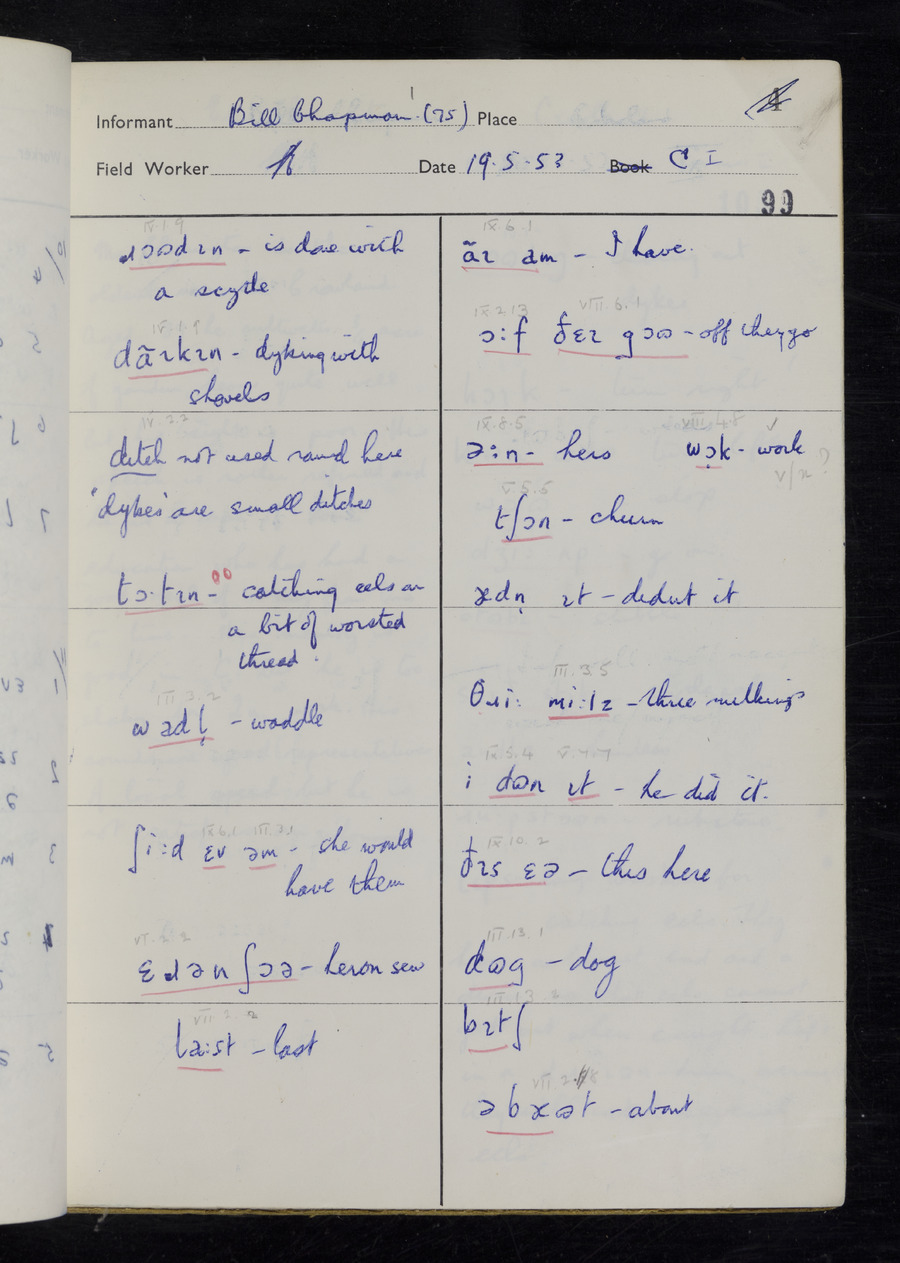 Informant Bill Chapman (75) Place
Field Worker Date 19.5.53 Book C I
99
IV.1.9
ɹɔɷdɪn - is done with
a scythe
IV.1.9
dãɪkɪn - dyking with
shovels
IV.2.2
ditch not used round here
'dykes' are small ditches
tɔ·tɪn - catching eels on
a bit of worsted
thread.
III.3.2
wɔdl̩ - waddle
IX.6.1 III.3.1
ʃi:d ɛv əm - she would
have them
ɛɹənʃɔə - heron sew
VII.2.2
la:st - last
IX.6.1
ãɪ am - I have.
IX.2.13 VIII.6.1
ɔ:f ðɛɪ gɔɷ - off they go
IX.8.5 VIII.4.8
ə:n - hers wɔ̣k - work
V/x?
V.5.5
tʃɔn - churn
ɪt - didnt it
III.3.5
θɹi: mi:lz - three milkings
IX.5.4
i dɷn ɪt - he did it.
IX.10.2
ðɪs ɛə - this here
III.13.1
dɷg - dog
III.13.3
bɪtʃ
VII.2.8
əbɤət - about